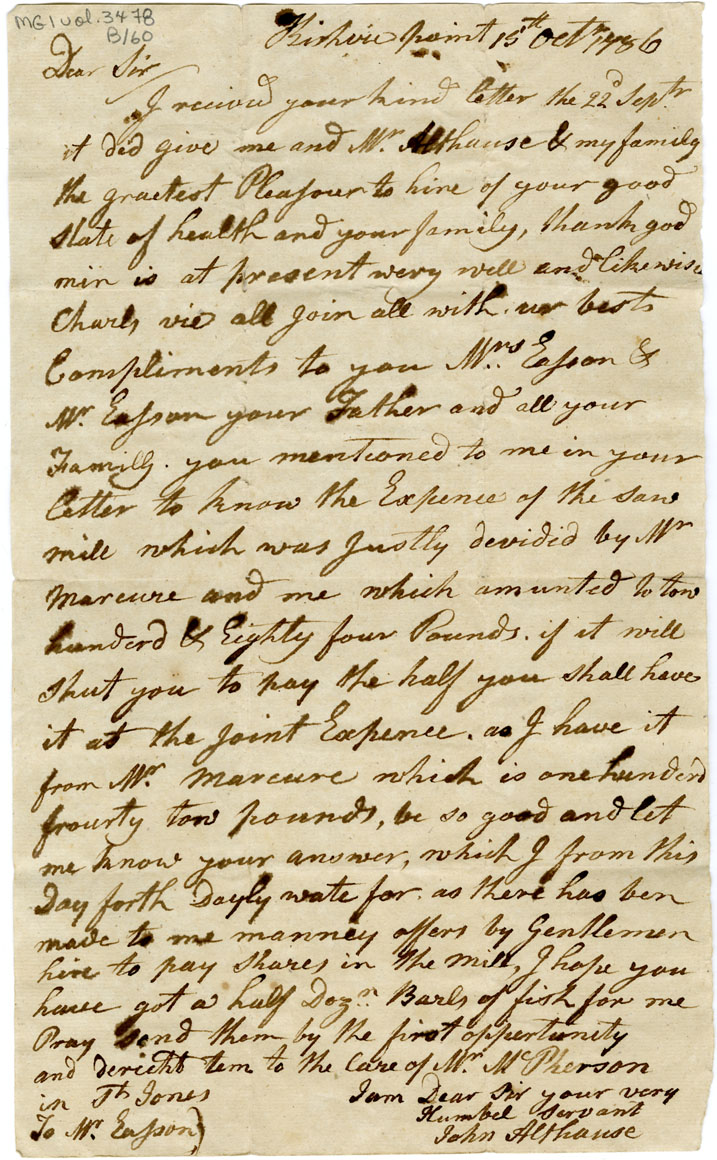 MG1 vol. 3478
B/60
point 15th Octr 1786
Dear Sir
I recived your kind letter the 22d Septr
it did give me and Mrs Althause & my family
the graetest Pleasour to hire of your good
state of health and your family, thank god
min is at present wery well and likewise
Charls vie all join all with ur bests
Compliments to you Mrs. Easson &
Mr. Easson your Father and all your
Familly. you mentioned to me in your
letter to know the Expence of the saw
mill which was Justly devidid by Mr
Marcure and me which amunted to tow
hunderd & Eighty four Pounds. if it will
shut you to pay the half you shall have
it at the Joint Expence. as I have it
from Mr. Marcure which is one hunderd
frourty tow pounds, be so good and let
me know your answer, which I from this
Day forth Dayly wate for. as there has ben
made to me manney offers by Gentlemen
hire to pay shares in the mill, I hope you
have got a half Dozn Barls of fish for me
Pray send them by the first opportunity
and dericht tem to the Care of Mr. McPherson
in St Jones
I am Dear Sir your very
Humbel servant
John Althause
To Mr. Easson